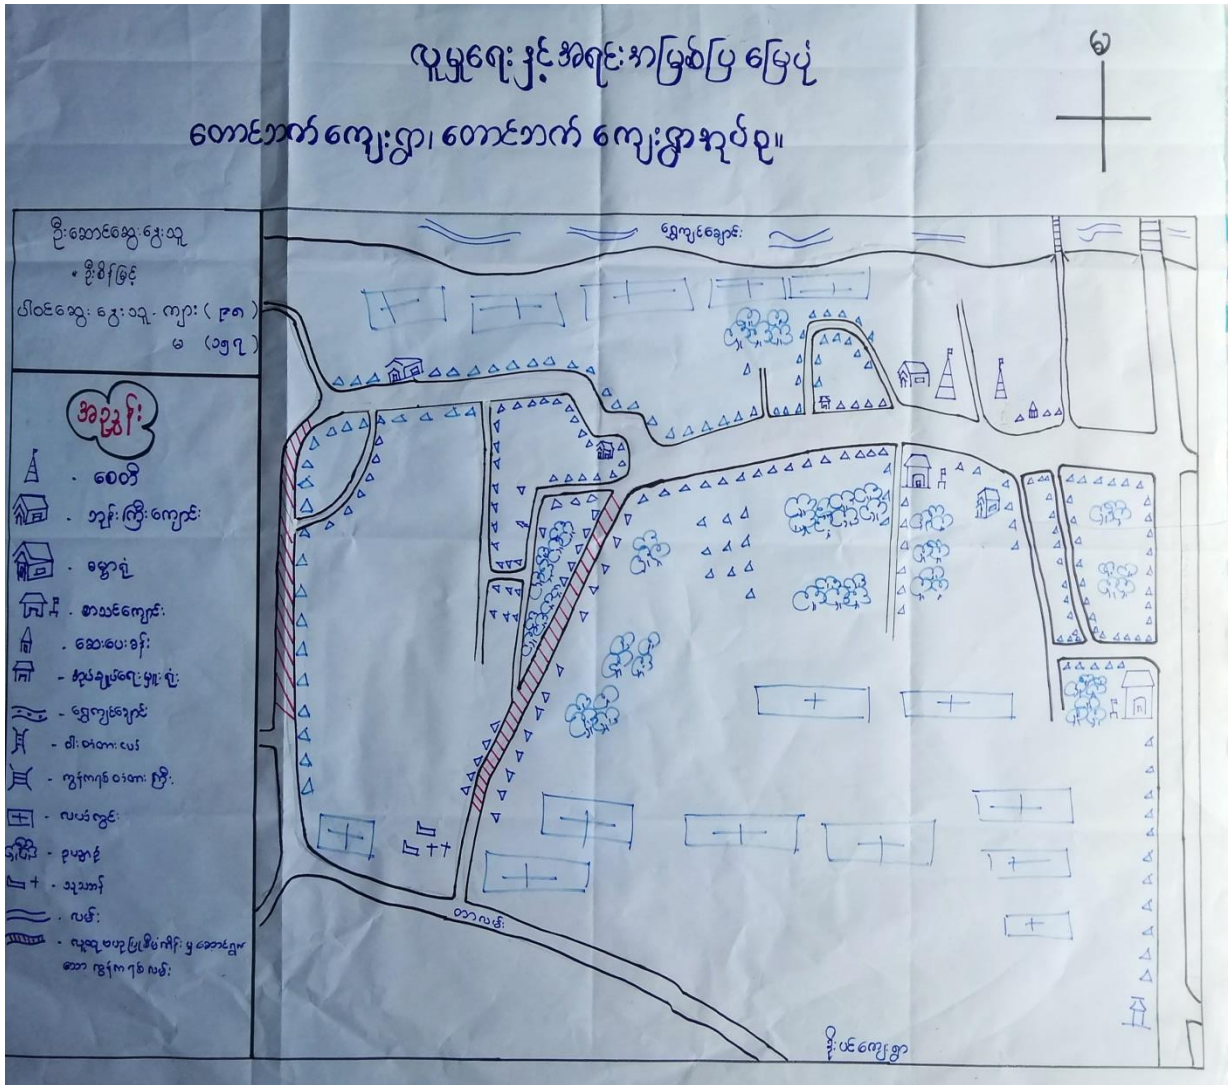 လူမှုရေးနှင့်အရင်းအမြစ်ပြ မြေပုံ
တောင်ဘက်ကျေးရွာ၊ တောင်ဘက် ကျေးရွာအုပ်စု။
မ
ဦးဆောင်ဆွေးနွေးသူ
• ဦးစိန်မြင့်
ပါဝင်ဆွေးနွေးသူ - ကျား ( ၉၈ )
မ (၁၅၇)
ရွှေကျင်ချောင်း
အညွှန်း
- စေတီ
- ဘုန်းကြီးကျောင်း
- ဓမ္မာရုံ
- စာသင်ကျောင်း
- ဆေးပေးခန်း
- အုပ်ချုပ်ရေးမှူးရုံး
- ရွှေကျင်ချောင်း
- ဝါးတံတား
- ကွန်ကရစ်တံတားကြီး
- လယ်ကွင်း
- ဥယျာဉ်
- သုသာန်
- လမ်း
- လူထုဗဟိုပြုစီမံကိန်းမှ ဆောင်ရွက်
သော ကွန်ကရစ်လမ်း
တာလမ်း
ဒိုးပင်ကျေးရွာ